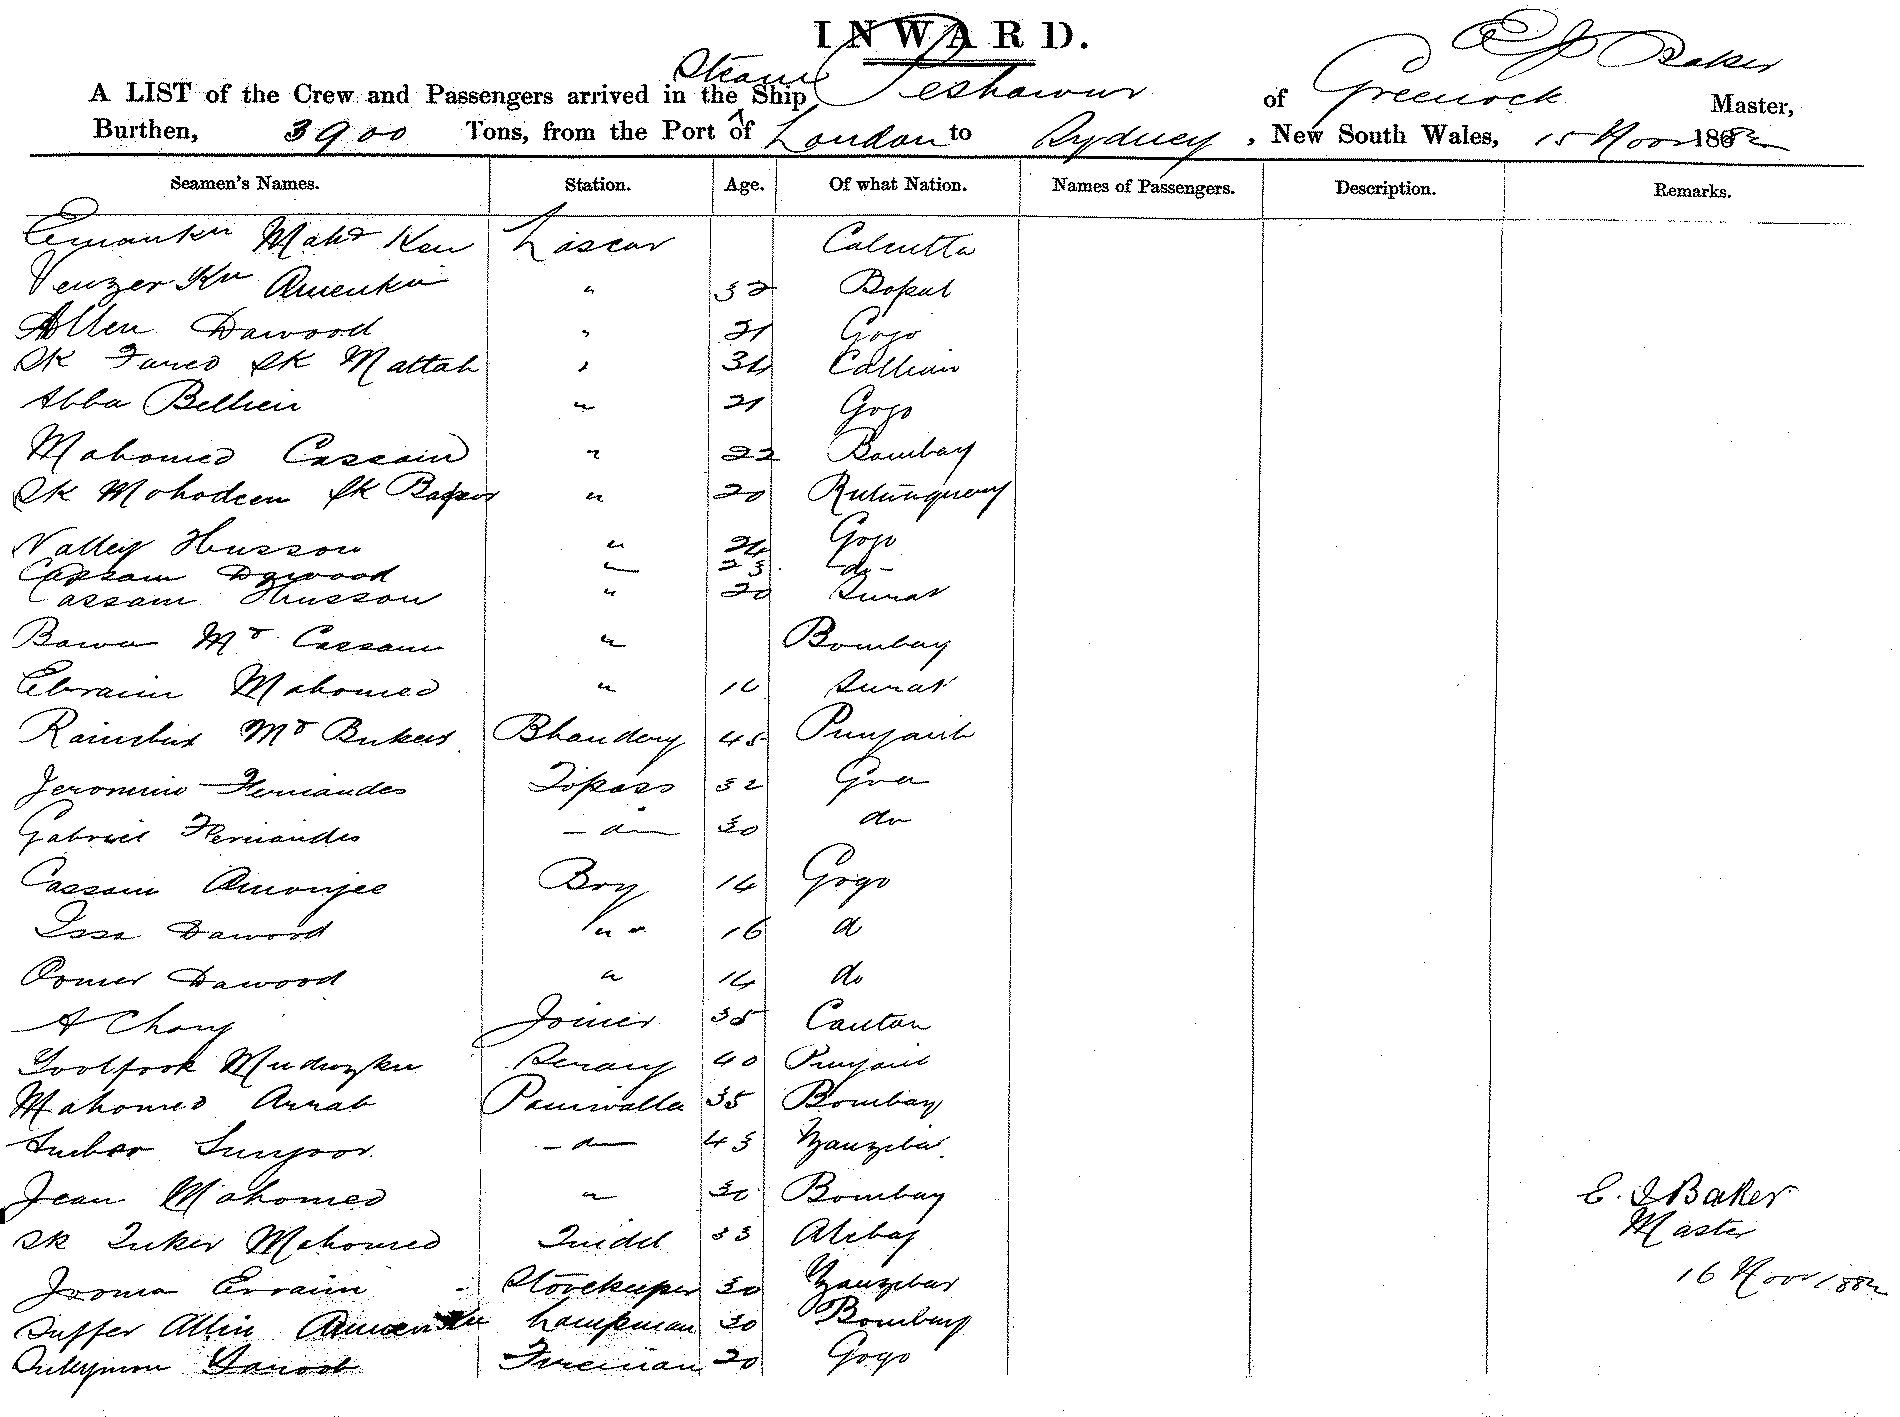 INWARD.
E J Baker
A LIST of the Crew and Passengers arrived in the Steam Ship Peshawur of Greenock Master,
Burthen, 3900 Tons, from the Port of London to Sydney, New South Wales, 15 Nov 1882
Seamen's Names. Station. Age. Of what Nation. Names of Passengers. Description. Remarks.
Mahd Lascar Calcutta
" 32 Bopal
Dawood " 21 Gogo
Sk Sk " 34 Callian
Abba " 21 Gogo
Mahomed Cassam " 22 Bombay
Sk Mohodeen Sk " 20
Valley Husson " 24 Gogo
Cassam Dawood " 23 do
Cassam Husson " 20 Surat
Bawa Md Cassam " Bombay
Ebraim Mahomed " Surat
Md Bhandary 45 Punjaub
Jeronimo Fernandes Topass 32 Goa
Gabriel Fernandes do 30 do
Cassam Amonjee Boy 14 Gogo
Issa Dawood " " 16 d
Oomer Dawood " 14 do
A Chong Joiner 35 Canton
Serang 40 Punjaub
Mahomed Arrab Paniwalla 35 Bombay
do 43 Zanzibar
Jean Mahomed " 30 Bombay
E. J Baker
Sk Mahomed Tindel 33 Alibag
Master
Jooma Storekeeper 30 Zanzibar
16 Nov 1882
Lampman 30 Bombay
Fireman 20 Gogo